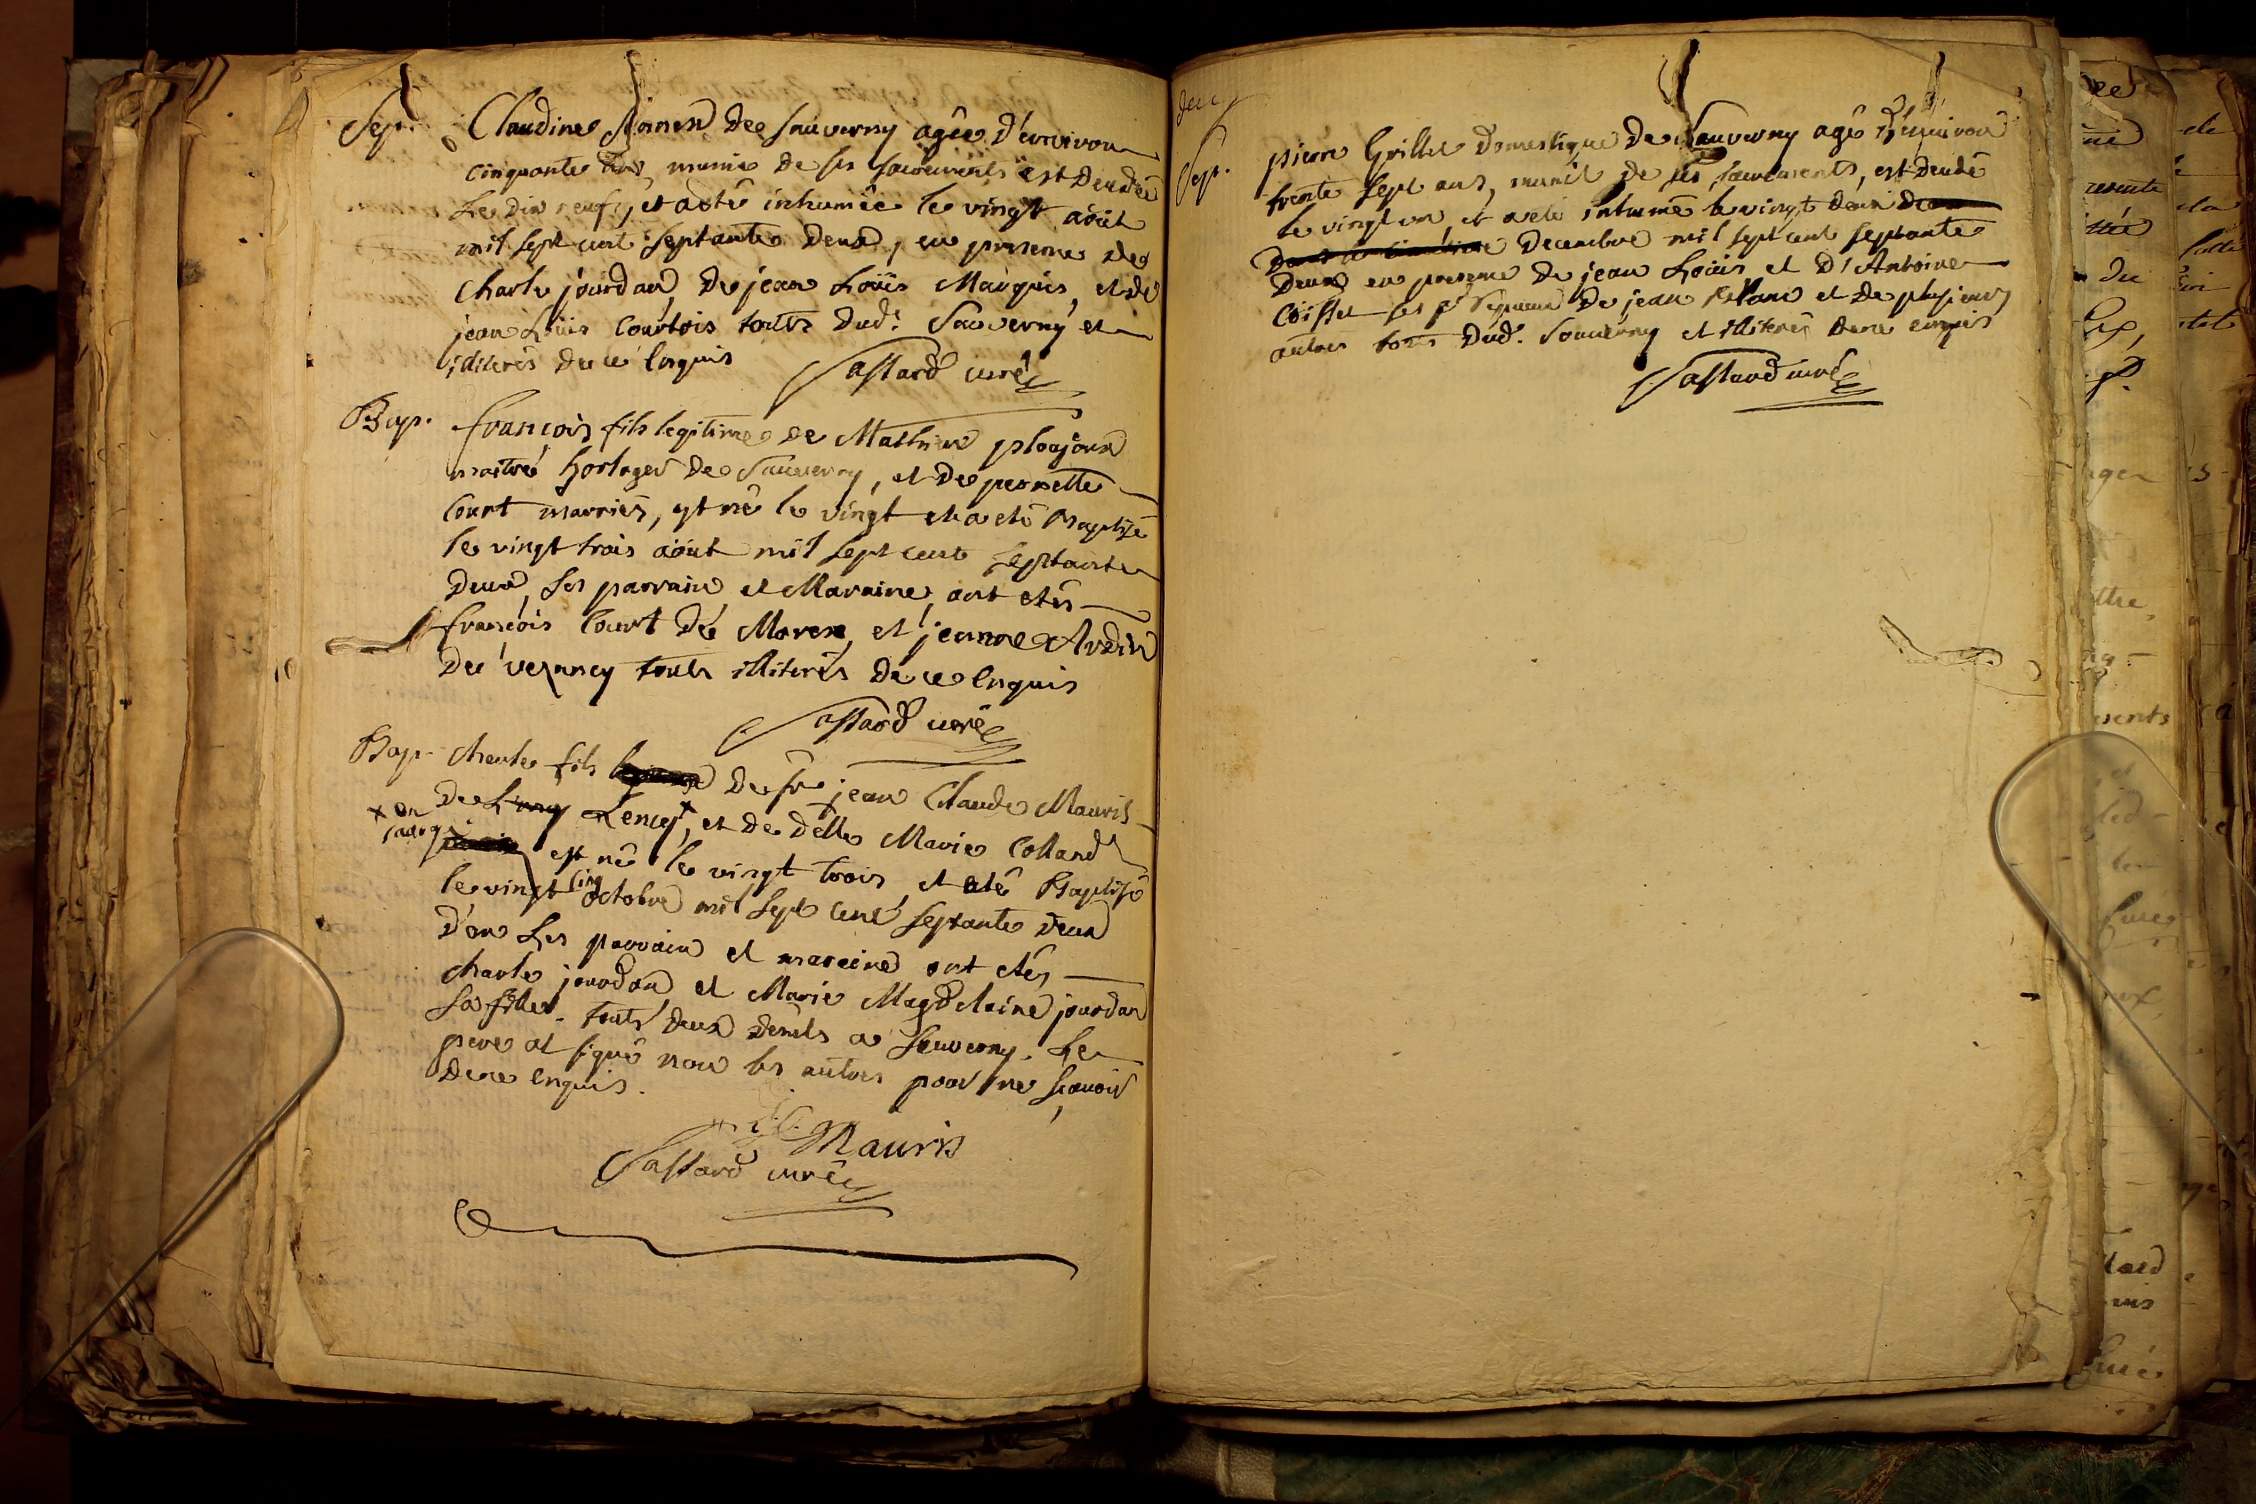 Sep. Claudine de Sauverny agée d'environ
cinquante ans, munie de ses sacrements est decedée
Le dix neuf, et a eté inhumée le vingt aôut
mil sept cent septante deux, en presence de
charle jourdan, de jean Loüis Marquis, et de
jean Loüis Courtois touts dud. Sauverny et
illiterés de ce enquis
Castard curé
Bap. francois fils legitime de Mathieu
maitre horloger de Sauverny, et de pernette
Court mariés, est né le vingt et a eté Baptisé
le vingt trois aôut mil sept cent septante
deux, Les parrain et Maraine, ont etés
francois Court de Morex, et jeanne
de vezancy touts illiterés de ce enquis
Castard curé
Bap. charle fils de sr jean Claude Mauris
de Lency +, et de delle Marie Colland
+ en
est né le vingt trois et eté Baptisé
le vingt cinq octobre mil sept cent septante deux
Les parrain et maraine ont etés
charle jourdan et Marie Magdelaine jourdan
sa fille. touts deux de Sauverny. Le
pere at signé non les autres pour ne scavoir
de ce enquis.
Mauris
Castard curé
deux
Sep. pierre Grillet domestique de Sauverny agé d'environ
trente sept ans, munit de ses sacrements, est decedé
le vingt un et a eté inhumé le vingt deux
decembre mil sept cent septante
deux en presence de jean Loüis et d'Antoine
Coisset de jean et de plusieurs
autres tous dud. Sauverny et illiterés de ce enquis
Castard curé